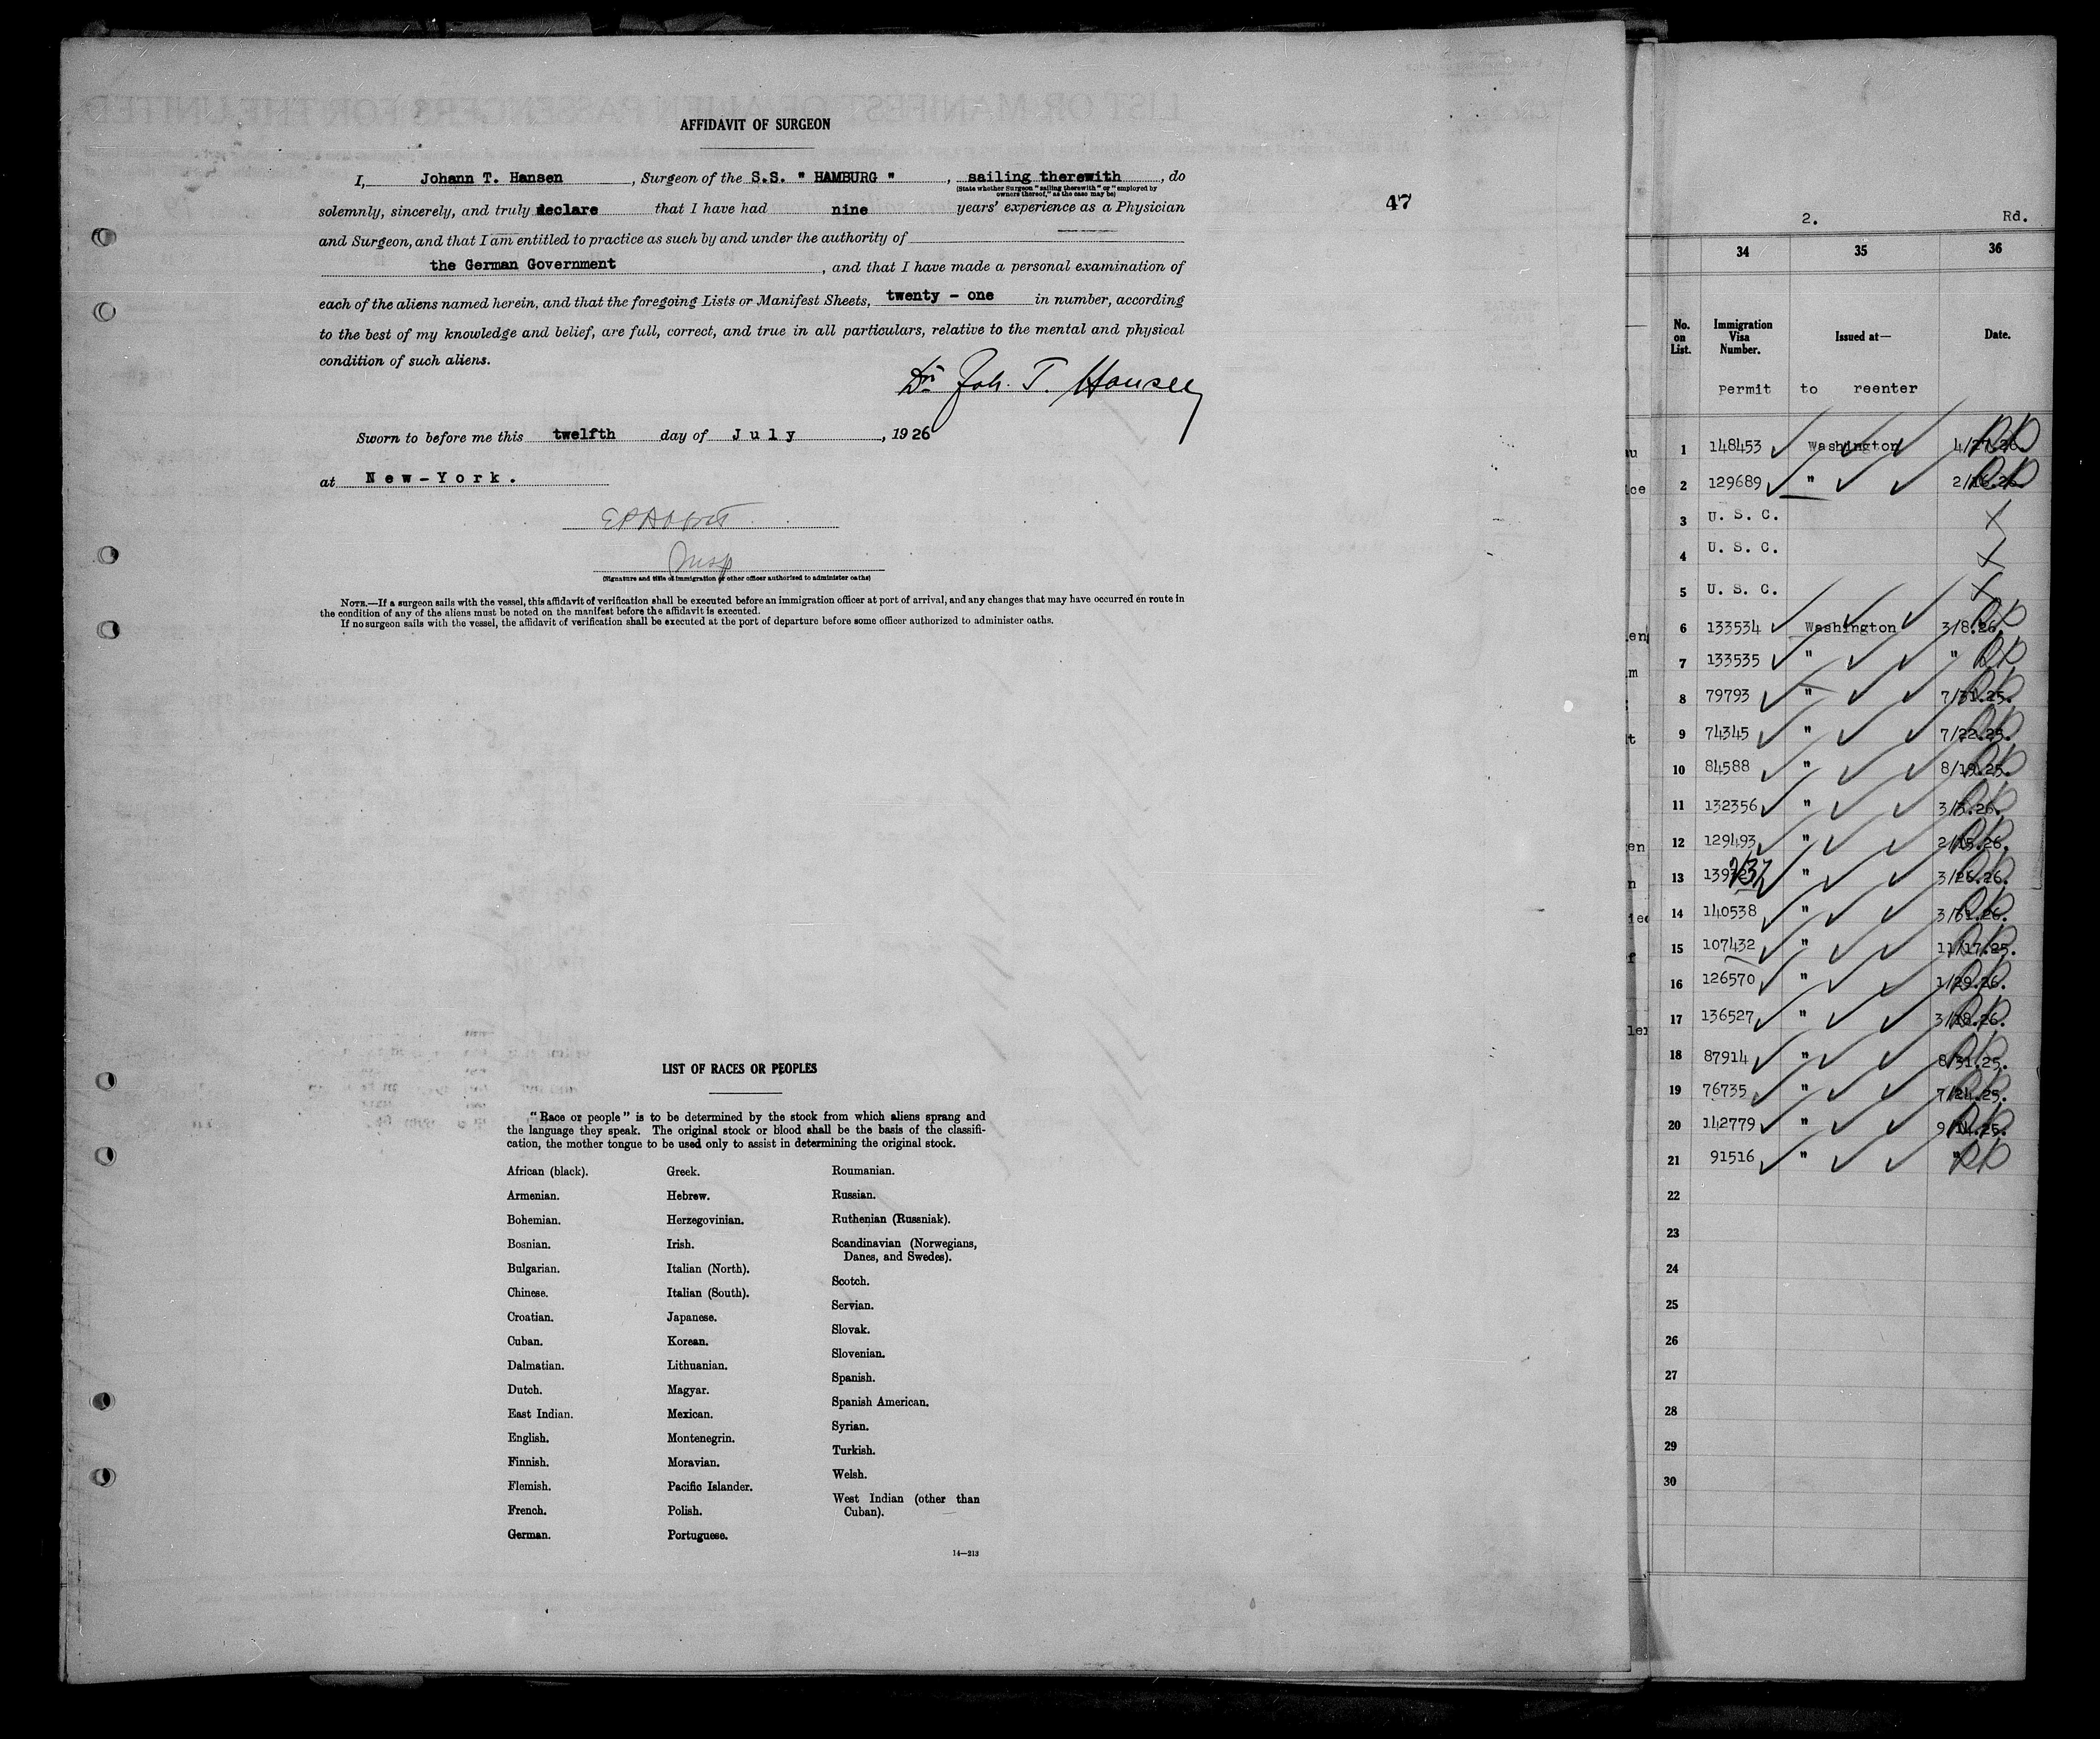 AFFIDAVIT OF SURGEON
I, Johann T. Hansen, Surgeon of the S.S. " HAMBURG ", sailing therewith, do
(State whether Surgeon "sailing therewith" or "employed by
owners thereof," as the case may be)
solemnly, sincerely, and truly declare that I have had nine years' experience as a Physician
and Surgeon, and that I am entitled to practice as such by and under the authority of
the German Government, and that I have made a personal examination of
each of the aliens named herein, and that the foregoing Lists or Manifest Sheets, twenty - one in number, according
to the best of my knowledge and belief, are full, correct, and true in all particulars, relative to the mental and physical
condition of such aliens.
Dr. Joh. T. Hansen
Sworn to before me this twelfth day of July, 1926
at New-York.
Insp
(Signature and title of immigration or other officer authorized to administer oaths)
NOTE.—If a surgeon sails with the vessel, this affidavit of verification shall be executed before an immigration officer at port of arrival, and any changes that may have occurred en route in
the condition of any of the aliens must be noted on the manifest before the affidavit is executed.
If no surgeon sails with the vessel, the affidavit of verification shall be executed at the port of departure before some officer authorized to administer oaths.
47
LIST OF RACES OR PEOPLES
"Race or people" is to be determined by the stock from which aliens sprang and
the language they speak. The original stock or blood shall be the basis of the classifi-
cation, the mother tongue to be used only to assist in determining the original stock.
African (black).
Armenian.
Bohemian.
Bosnian.
Bulgarian.
Chinese.
Croatian.
Cuban.
Dalmatian.
Dutch.
East Indian.
English.
Finnish.
Flemish.
French.
German.
Greek.
Hebrew.
Herzegovinian.
Irish.
Italian (North).
Italian (South).
Japanese.
Korean.
Lithuanian.
Magyar.
Mexican.
Montenegrin.
Moravian.
Pacific Islander.
Polish.
Portuguese.
Roumanian.
Russian.
Ruthenian (Russniak).
Scandinavian (Norwegians,
Danes, and Swedes).
Scotch.
Servian.
Slovak.
Slovenian.
Spanish.
Spanish American.
Syrian.
Turkish.
Welsh.
West Indian (other than
Cuban).
14—213
2. Rd.
34 35 36
No. on List. Immigration Visa Number. Issued at— Date.
Permit to reenter
1 148453 Washington
2 129689 "
3 U. S. C.
4 U. S. C.
5 U. S. C.
6 133534 Washington 3/8.26.
7 133535 " "
8 79793 " 7/31.25.
9 74345 " 7/22.25.
10 84588 " 8/19.25.
11 132356 " 3/3.26.
12 129493 " 2/15.26.
13 " 3/26.26.
14 140538 " 3/31.26.
15 107432 " 11/17.25.
16 126570 " 1/29.26.
17 136527 " 3/18.26.
18 87914 " 8/31.25.
19 76735 " 7/24.25.
20 142779 "
21 91516 " "
22
23
24
25
26
27
28
29
30